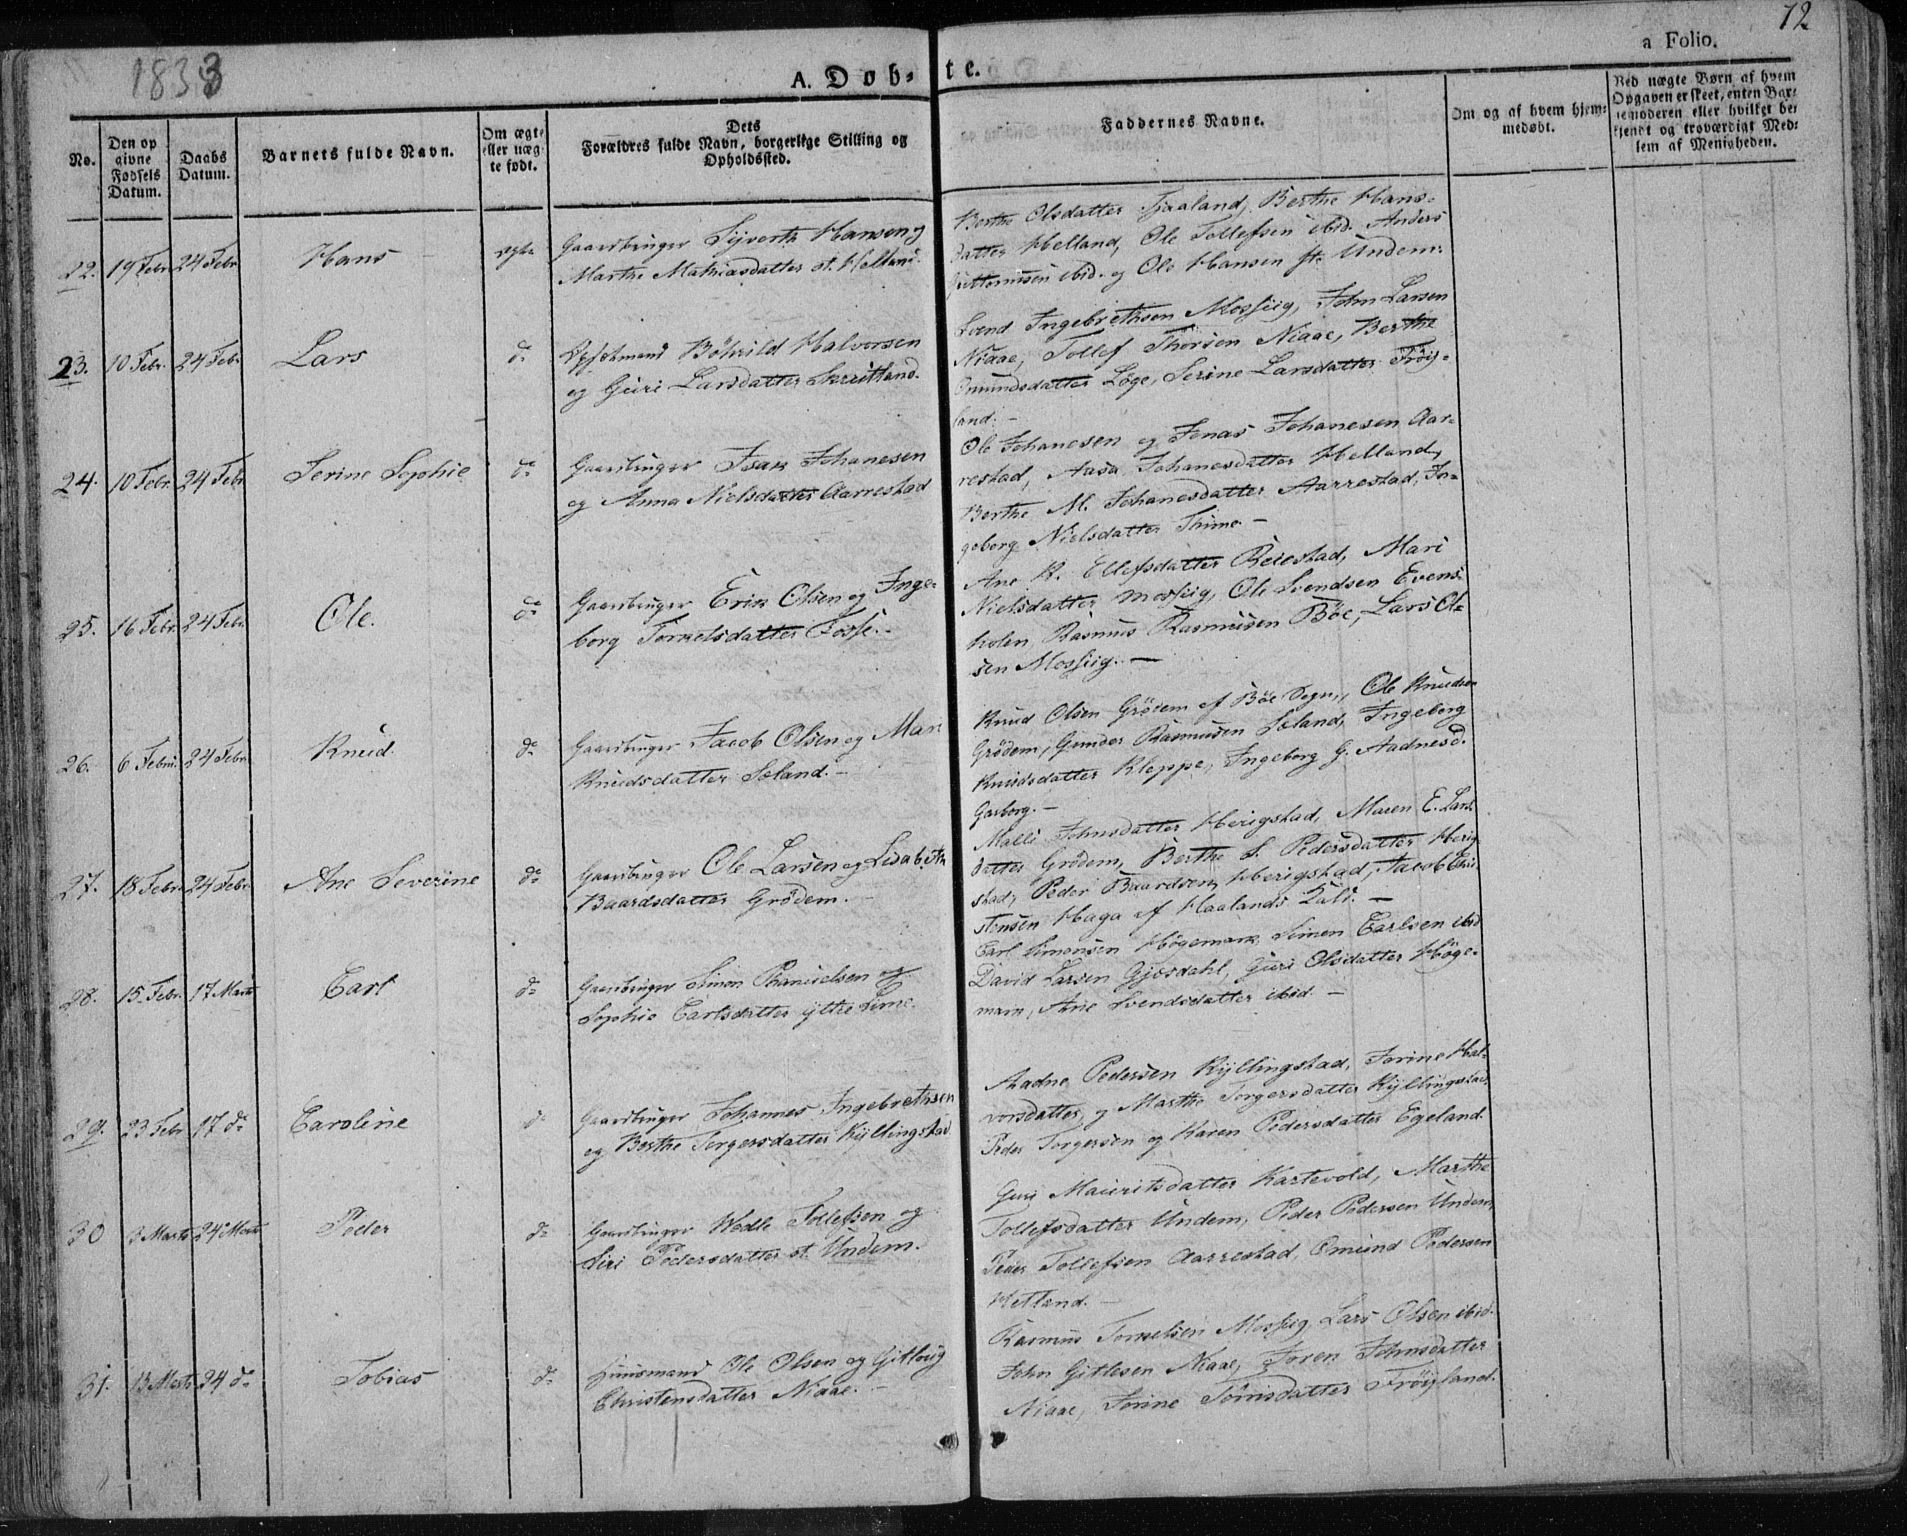 1833
A. Døb-
te.
a Folio.
12
No.
Den op
givne
Fødsels
Datum.
Daabs
Datum.
Barnets fulde Navn.
Om ægte
eller uæg-
te født.
Dets
Forældres fulde Navn, borgerlige Stilling og
Opholdssted.
Faddernes Navne.
Om og af hvem hjem-
medøbt.
Ved uægte Børn af hvem
Opgaven er skeet, enten Bar-
nemoderen eller hvilket be-
kjendt og troværdigt Med-
lem af Menigheden.
22. 19 Febr. 24 Febr. Hans ægte
Gaardbruger Syvert Hansen og
Marthe Mathiasdatter st. Helland.
Berthe Olsdatter Fjaaland, Berthe Hans-
datter Helland, Ole Tollefsen ibid. Anders
Guttormsen ibid. og Ole Hansen st. Undem.
23. 10 Febr. 24 Febr. Lars do
Halvorsen
og Guri Larsdatter Skreitland.
Svend Ingebrethsen Mossiig, John Larsen
Niaae, Tollef Thorsen Niaae, Berthe
Omundsdatter Løge, Serine Larsdatter Frøy-
land. -
24. 10 Febr. 24 Febr. Serine Sophie do
Gaardbruger Isak Johanesen
og Anna Nielsdatter Aarrestad
Ole Johanesen og Jonas Johanesen Aar-
restad, Aasa Johanesdatter Helland,
Berthe M. Johanesdatter Aarrestad, In-
geborg Nielsdatter Thime. -
25. 16 Febr. 24 Febr. Ole. do
Gaardbruger Erik Olsen og Inge-
borg Torkelsdatter Fosse. -
Ane K. Ellefsdatter Reiestad, Mari
Nielsdatter Mossiig, Ole Svendsen Evens-
holen Rasmus Rasmusen Bøe, Lars Ol-
sen Mossiig. -
26. 6 Febr. 24 Febr. Knud. do
Gaardbruger Jacob Olsen og Mari
Knudsdatter Søland. -
Knud Olsen Grødem af Bøe Sogn, Ole Knudsen
Grødem, Gunder Rasmusen Søland, Ingeborg
Knudsdatter Kleppe, Ingeborg G. Aadnesd.
Garborg. -
27. 18 Febr. 24 Febr. Ane Severine do
Gaardbruger Ole Larsen og Lisabeth
Baardsdatter Grødem. -
Malli Johnsdatter Herigstad, Maren E. Lars-
datter Grødem, Berthe S. Pedersdatter Herig-
stad, Peder Baardsen Herigstad, Jacob Chri-
stensen Haga af Haalands
28. 15. Febr. 17 Marts Carl do
Gaardbruger Simon
Sophie Carlsdatter ytre Lime.
Carl Simonsen Høgemark, Simon Carlsen ibid
David Larsen Gjesdahl, Guri Olsdatter Høge-
mark, Ane Svendsdatter ibid. -
29. 23 Febr. 17 do Caroline do
Gaardbruger Johannes Ingebrethsen
og Berthe Torgersdatter Kyllingstad
Aadne Pedersen Kyllingstad, Torine Hal-
vorsdatter, og Marthe Torgersdatter Kyllingstad.
Peder Torgersen og Karen Pedersdatter Egeland.
30 3 Marts 24 Marts Peder do
Gaardbruger Wedle Tollefsen og
Siri Pedersdatter st. Undem.
Guri Mauritsdatter Kartevold, Marthe
Tollefsdatter Undem, Peder Pedersen Undem,
Peder Tollefsen Aarrestad, Omund Pedersen
Hetland. -
31. 13 Marts 24 do Tobias do
Huusmand Ole Olsen og Gitlaug
Christensdatter Niaae. -
Rasmus Torkelsen Mossiig, Lars Olsen ibid.
John Gitlesen Niaae, Joren Johnsdatter
Niaae, Torine Tønisdatter Frøyland.